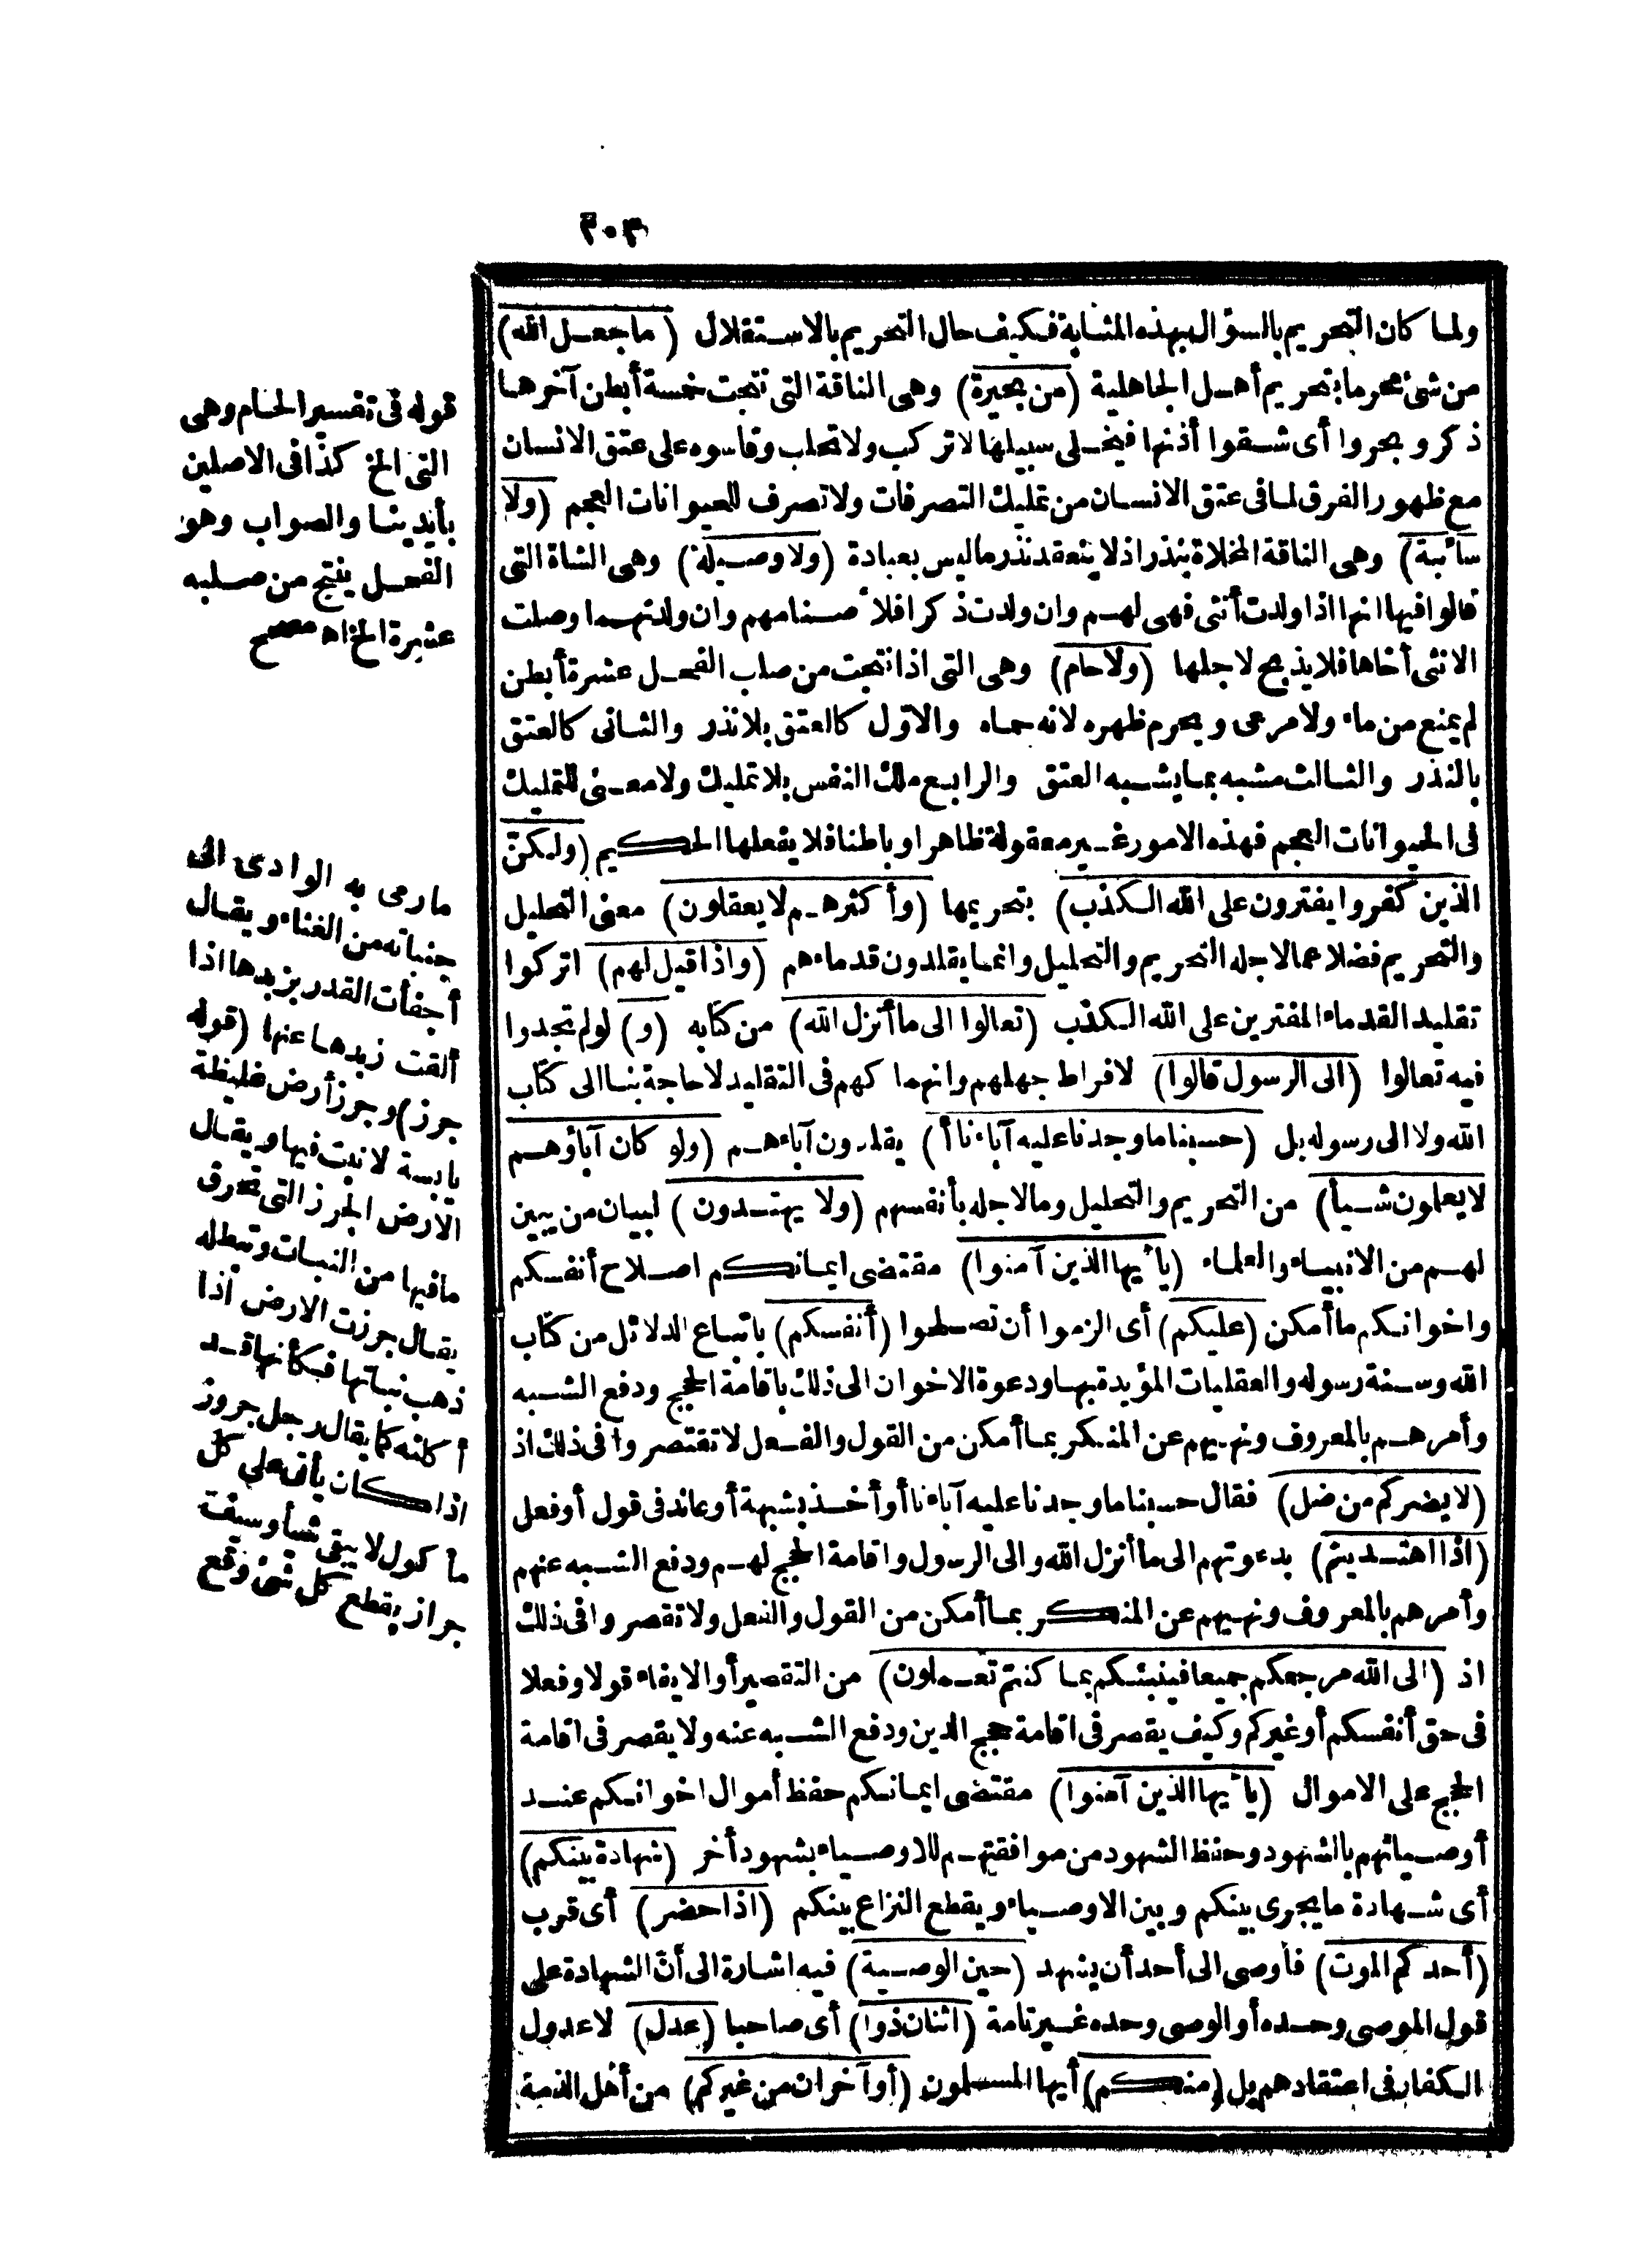 ٢٠٣
ولما كان التحريم بالسؤال بهذه المثابة فكيف حال التحريم بالاستقلال (ما جعل الله)
من شئ محرما بتحريم أهل الجاهلية (من بحيرة) وهى الناقة التى نتجت خمسة أبطن آخرها
ذكر وبحروا أى شقوا أذنها فيخلى سبيلها لا تركب ولا تحلب وقاسوه على عتق الانسان
مع ظهور الفرق لما فى عتق الانسان من تمليك التصرفات ولا تصرف للحيوانات العجم (ولا
سائبة) وهى الناقة المخلاة بنذر اذ لا ينعقد نذر ما ليس بعبادة (ولا وصيلة) وهى الشاة التى
قالوا فيها انها اذا ولدت أنثى فهى لهم وان ولدت ذكرا فلأصنامهم وان ولدتهما وصلت
الانثى أخاها فلا يذبح لاجلها (ولا حام) وهى التى اذا نتجت من صلب الفحل عشرة أبطن
لم يمنع من ماء ولا مرعى ويحرم ظهره لانه حماه والاول كالعتق بلا نذر والثانى كالعتق
بالنذر والثالث مشبه بما يشبه العتق والرابع ملك النفس بلا تمليك ولا معنى للتمليك
فى الحيوانات العجم فهذه الامور غير معقولة ظاهرا وباطنا فلا يفعلها الحكيم (ولكن
الذين كفروا يفترون على الله الكذب) بتحريمها (وأكثرهم لا يعقلون) معنى التحليل
والتحريم فضلا عما لاجله التحريم والتحليل وانما يقلدون قدماءهم (واذا قيل لهم) اتركوا
تقليد القدماء المفترين على الله الكذب (تعالوا الى ما أنزل الله) من كتابه (و) لو لم تجدوا
فيه تعالوا (الى الرسول قالوا) لافراط جهلهم وانهماكهم فى التقليد لا حاجة بنا الى كتاب
الله ولا الى رسوله بل (حسبنا ما وجدنا عليه آباءنا أ) يقلدون آباءهم (ولو كان آباؤهم
لا يعلمون شيأ) من التحريم والتحليل وما لاجله بأنفسهم (ولا يهتدون) لبيان من يبين
لهم من الانبياء والعلماء (يا أيها الذين آمنوا) مقتضى ايمانكم اصلاح أنفسكم
واخوانكم ما أمكن (عليكم) أى الزموا أن تصلحوا (أنفسكم) باتباع الدلائل من كتاب
الله وسنة رسوله والعقليات المؤيدة بها ودعوة الاخوان الى ذلك باقامة الحجج ودفع الشبه
وأمرهم بالمعروف ونهيهم عن المنكر بما أمكن من القول والفعل لا تقتصروا فى ذلك اذ
(لا يضركم من ضل) فقال حسبنا ما وجدنا عليه آباءنا أو أخذ بشبهة أو عاند فى قول أو فعل
(اذا اهتديتم) بدعوتهم الى ما أنزل الله والى الرسول واقامة الحجج لهم ودفع الشبه عنهم
وأمرهم بالمعروف ونهيهم عن المنكر بما أمكن من القول والفعل ولا تقصروا فى ذلك
اذ (الى الله مرجعكم جميعا فينبئكم بما كنتم تعملون) من التقصير أو الايفاء قولا وفعلا
فى حق أنفسكم أو غيركم وكيف يقصر فى اقامة حجج الدين ودفع الشبه عنه ولا يقصر فى اقامة
الحجج على الاموال (يا أيها الذين آمنوا) مقتضى ايمانكم حفظ أموال اخوانكم عند
أوصيائهم بالشهود وحفظ الشهود من موافقتهم للاوصياء بشهود أخر (شهادة بينكم)
أى شهادة ما يجرى بينكم وبين الاوصياء ويقطع النزاع بينكم (اذا حضر) أى قرب
(أحدكم الموت) فأوصى الى أحد أن يشهد (حين الوصية) فيه اشارة الى أن الشهادة على
قول الموصى وحده أو الوصى وحده غير تامة (اثنان ذوا) أى صاحبا (عدل) لا عدول
الكفار فى اعتقادهم بل (منكم) أيها المسلمون (أو آخران من غيركم) من أهل الذمة
قوله فى تفسير الحام وهى
التى الخ كذا فى الاصلين
بأيدينا والصواب وهو
الفحل ينتج من صلبه
عشرة الخ اه مصحح
ما رمى به الوادى الى
جنباته من الغثاء ويقال
أجفأت القدر بزبدها اذا
ألقت زبدها عنها (قوله
جرز) وجرز أرض غليظة
يابسة لا نبت فيها ويقال
الارض الجرز التى تحرق
ما فيها من النبات وتبطله
يقال جرزت الارض اذا
ذهب نباتها فكأنها قد
أكلته كما يقال رجل جروز
اذا كان يأتى على كل
مأكول لا يبقى شيأ وسيف
جراز يقطع كل شئ وقع